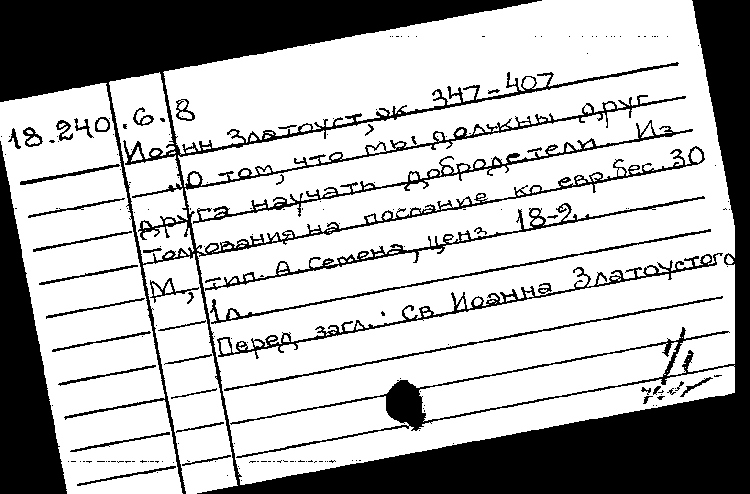 18.240.6.8
Иоанн Златоуст, ок. 347-407
"О том, что мы должны друг
друга научать добродетели. Из
Толкования на послание ко евр. бес. 30
М., тип. А. Семена, ценз. 18-2..
1л.
Перед загл.: Св Иоанна Златоустого
1/1